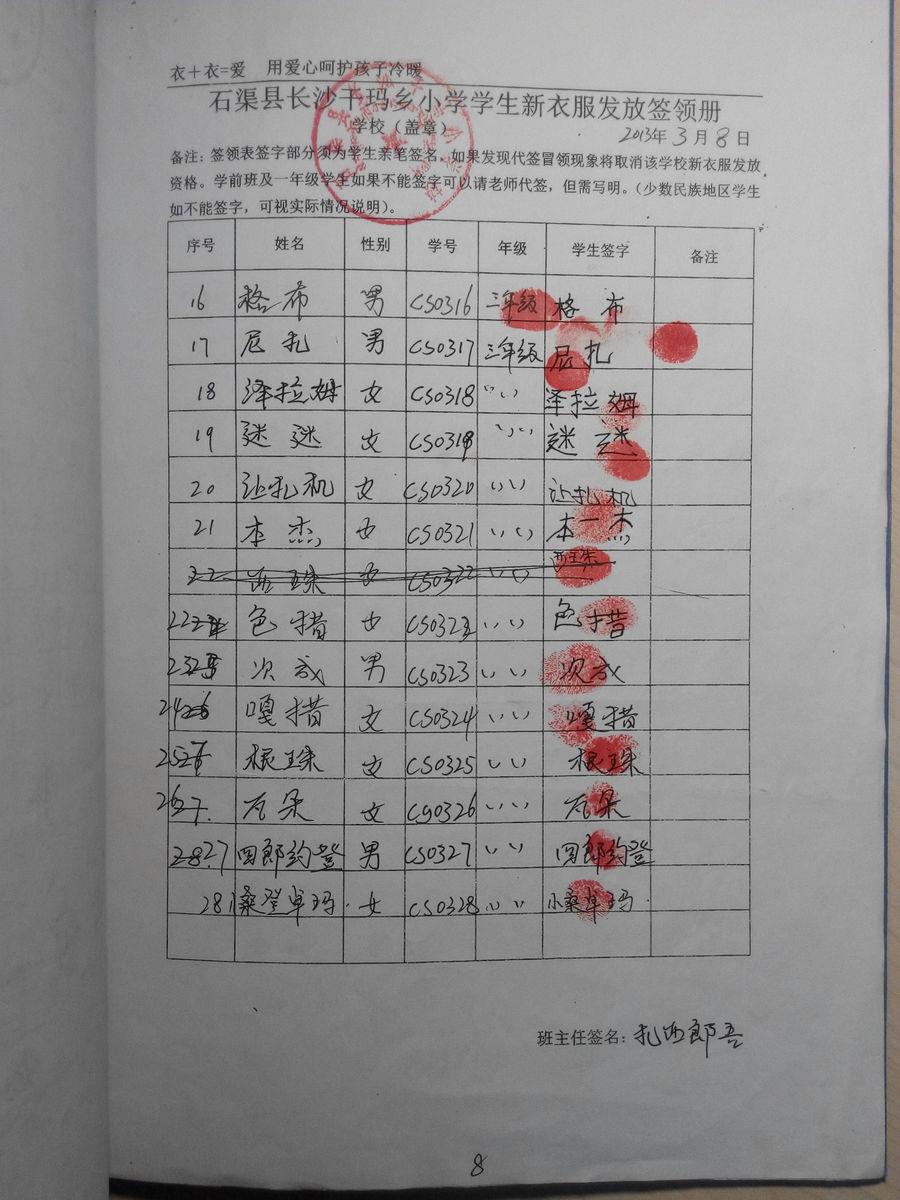 衣＋衣=爱 用爱心呵护孩子冷暖
石渠县长沙干玛乡小学学生新衣服发放签领册
学校（盖章）
2013年3月8日
备注：签领表签字部分须为学生亲笔签名，如果发现代签冒领现象将取消该学校新衣服发放
资格。学前班及一年级学生如果不能签字可以请老师代签，但需写明。（少数民族地区学生
如不能签字，可视实际情况说明）。
序号 姓名 性别 学号 年级 学生签字 备注
16 格布 男 CS0316 三年级 格布
17 尼扎 男 CS0317 三年级 尼扎
18 泽拉姆 女 CS0318 〃 泽拉姆
19 迷迷 女 CS0319 〃 迷迷
20 让扎机 女 CS0320 〃 让扎机
21 本杰 女 CS0321 〃 本杰
22 西珠 女 CS0322 〃 西珠
22 色措 女 CS0322 〃 色措
23 次成 男 CS0323 〃 次成
24 嘎措 女 CS0324 〃 嘎措
25 根珠 女 CS0325 〃 根珠
26 瓦朵 女 CS0326 〃 瓦朵
27 四郎约登 男 CS0327 〃 四郎约登
28 桑登卓玛 女 CS0328 〃 小桑卓玛
班主任签名：扎西郎吾
8